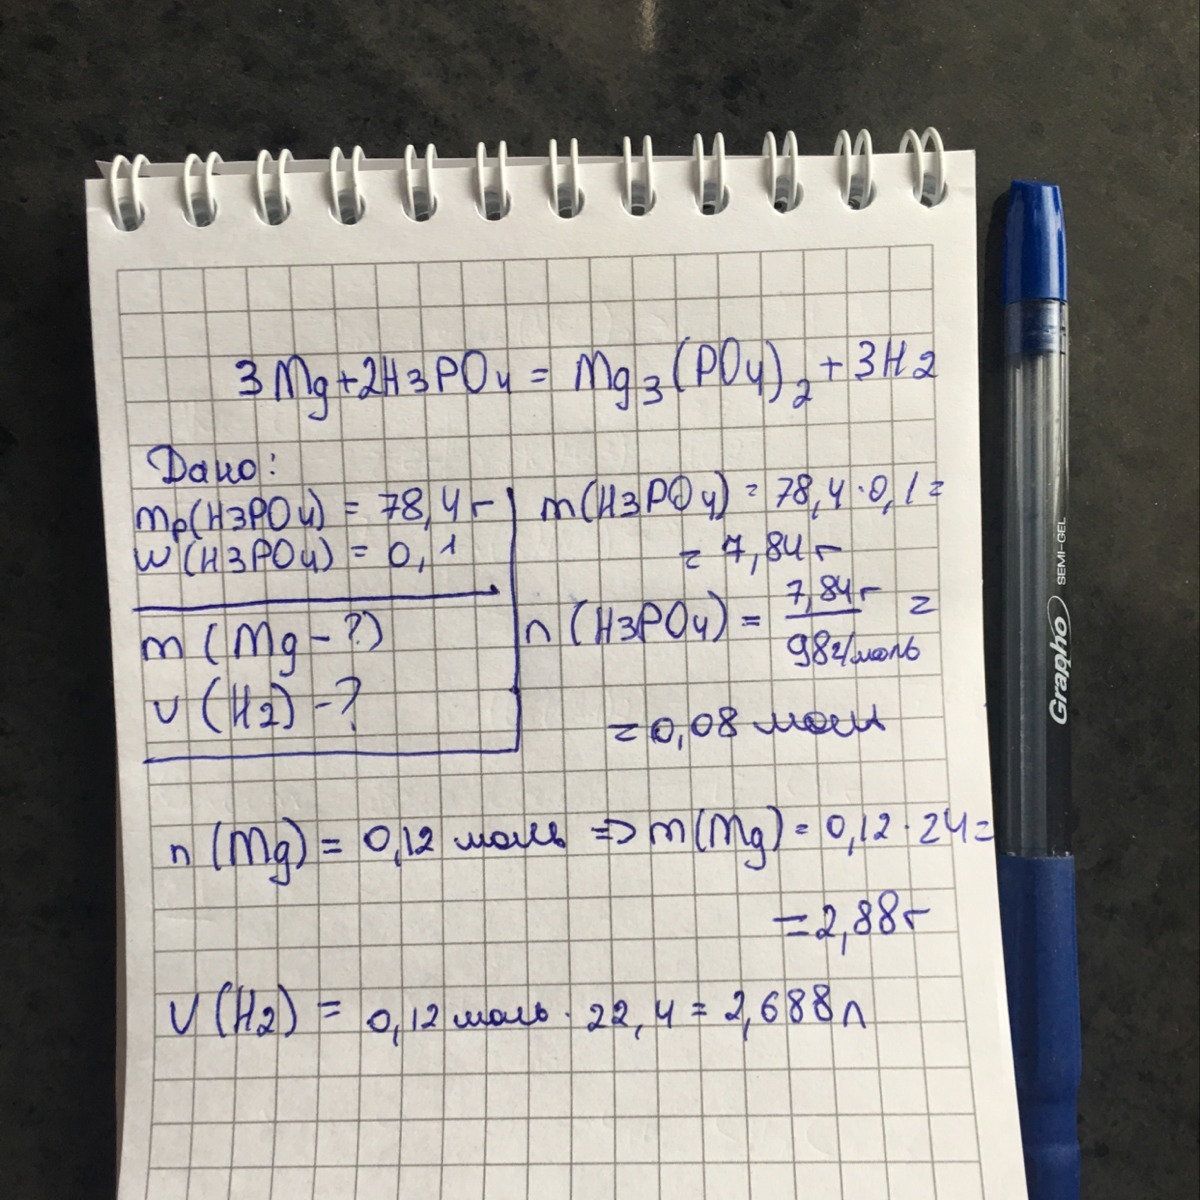 3Mg+2H3PO4 = Mg3(PO4)2+3H2
Дано:
mр(H3PO4) = 78,4 г
w(H3PO4) = 0,1
m (Mg-?)
v (H2) -?
m(H3PO4) = 78,4·0,1=
= 7,84 г
n (H3PO4) = 7,84 г / 98г/моль =
=0,08 моль
n (Mg) = 0,12 моль => m(Mg) = 0,12·24=
=2,88 г
V(H2) = 0,12 моль·22,4=2,688 л
Grapho SEMI-GEL